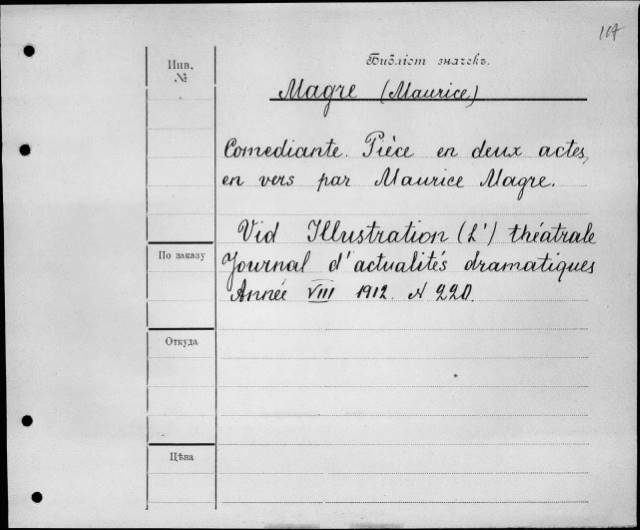 117
Инв.
№
Библіот значекъ.
Magre (Maurice)
Comediante. Pièce en deux actes,
en vers par Maurice Magre.
Vid Illustration (L') théatrale
По заказу
Journal d'actualités dramatiques
Année VIII 1912. N 220.
Откуда
Цѣна